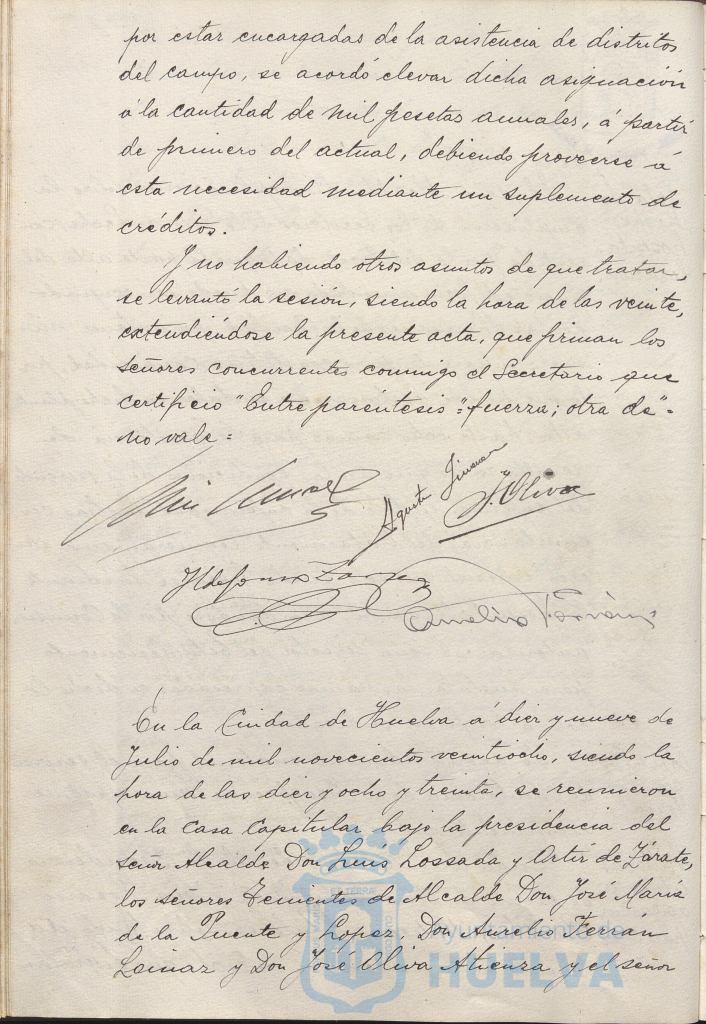 por estar encargadas de la asistencia de distritos
del campo, se acordó elevar dicha asignación
á la cantidad de mil pesetas anuales, á partir
de primero del actual, debiendo proveerse á
esta necesidad mediante un suplemento de
créditos.
Y no habiendo otros asuntos de que tratar,
se levantó la sesión, siendo la hora de las veinte,
extendiéndose la presente acta, que firman los
señores concurrentes conmigo el Secretario que
certificio "Entre paréntesis" = fuerza; otra de" =
no vale =
Agustí Jimenez
J. Oliva
Yldefonso
Aurelio Ferrán
En la Ciudad de Huelva á diez y nueve de
Julio de mil novecientos veintiocho, siendo la
hora de las diez y ocho y treinta, se reunieron
en la Casa Capitular bajo la presidencia del
señr Alcalde Don Luís Lossada y Ortíz de Zárate,
los señores Tenientes de Alcalde Don José María
de la Puente y Lopez, Don Aurelio Ferrán
Loinaz y Don José Oliva Atienza y el señor
Ayuntamiento de
HUELVA